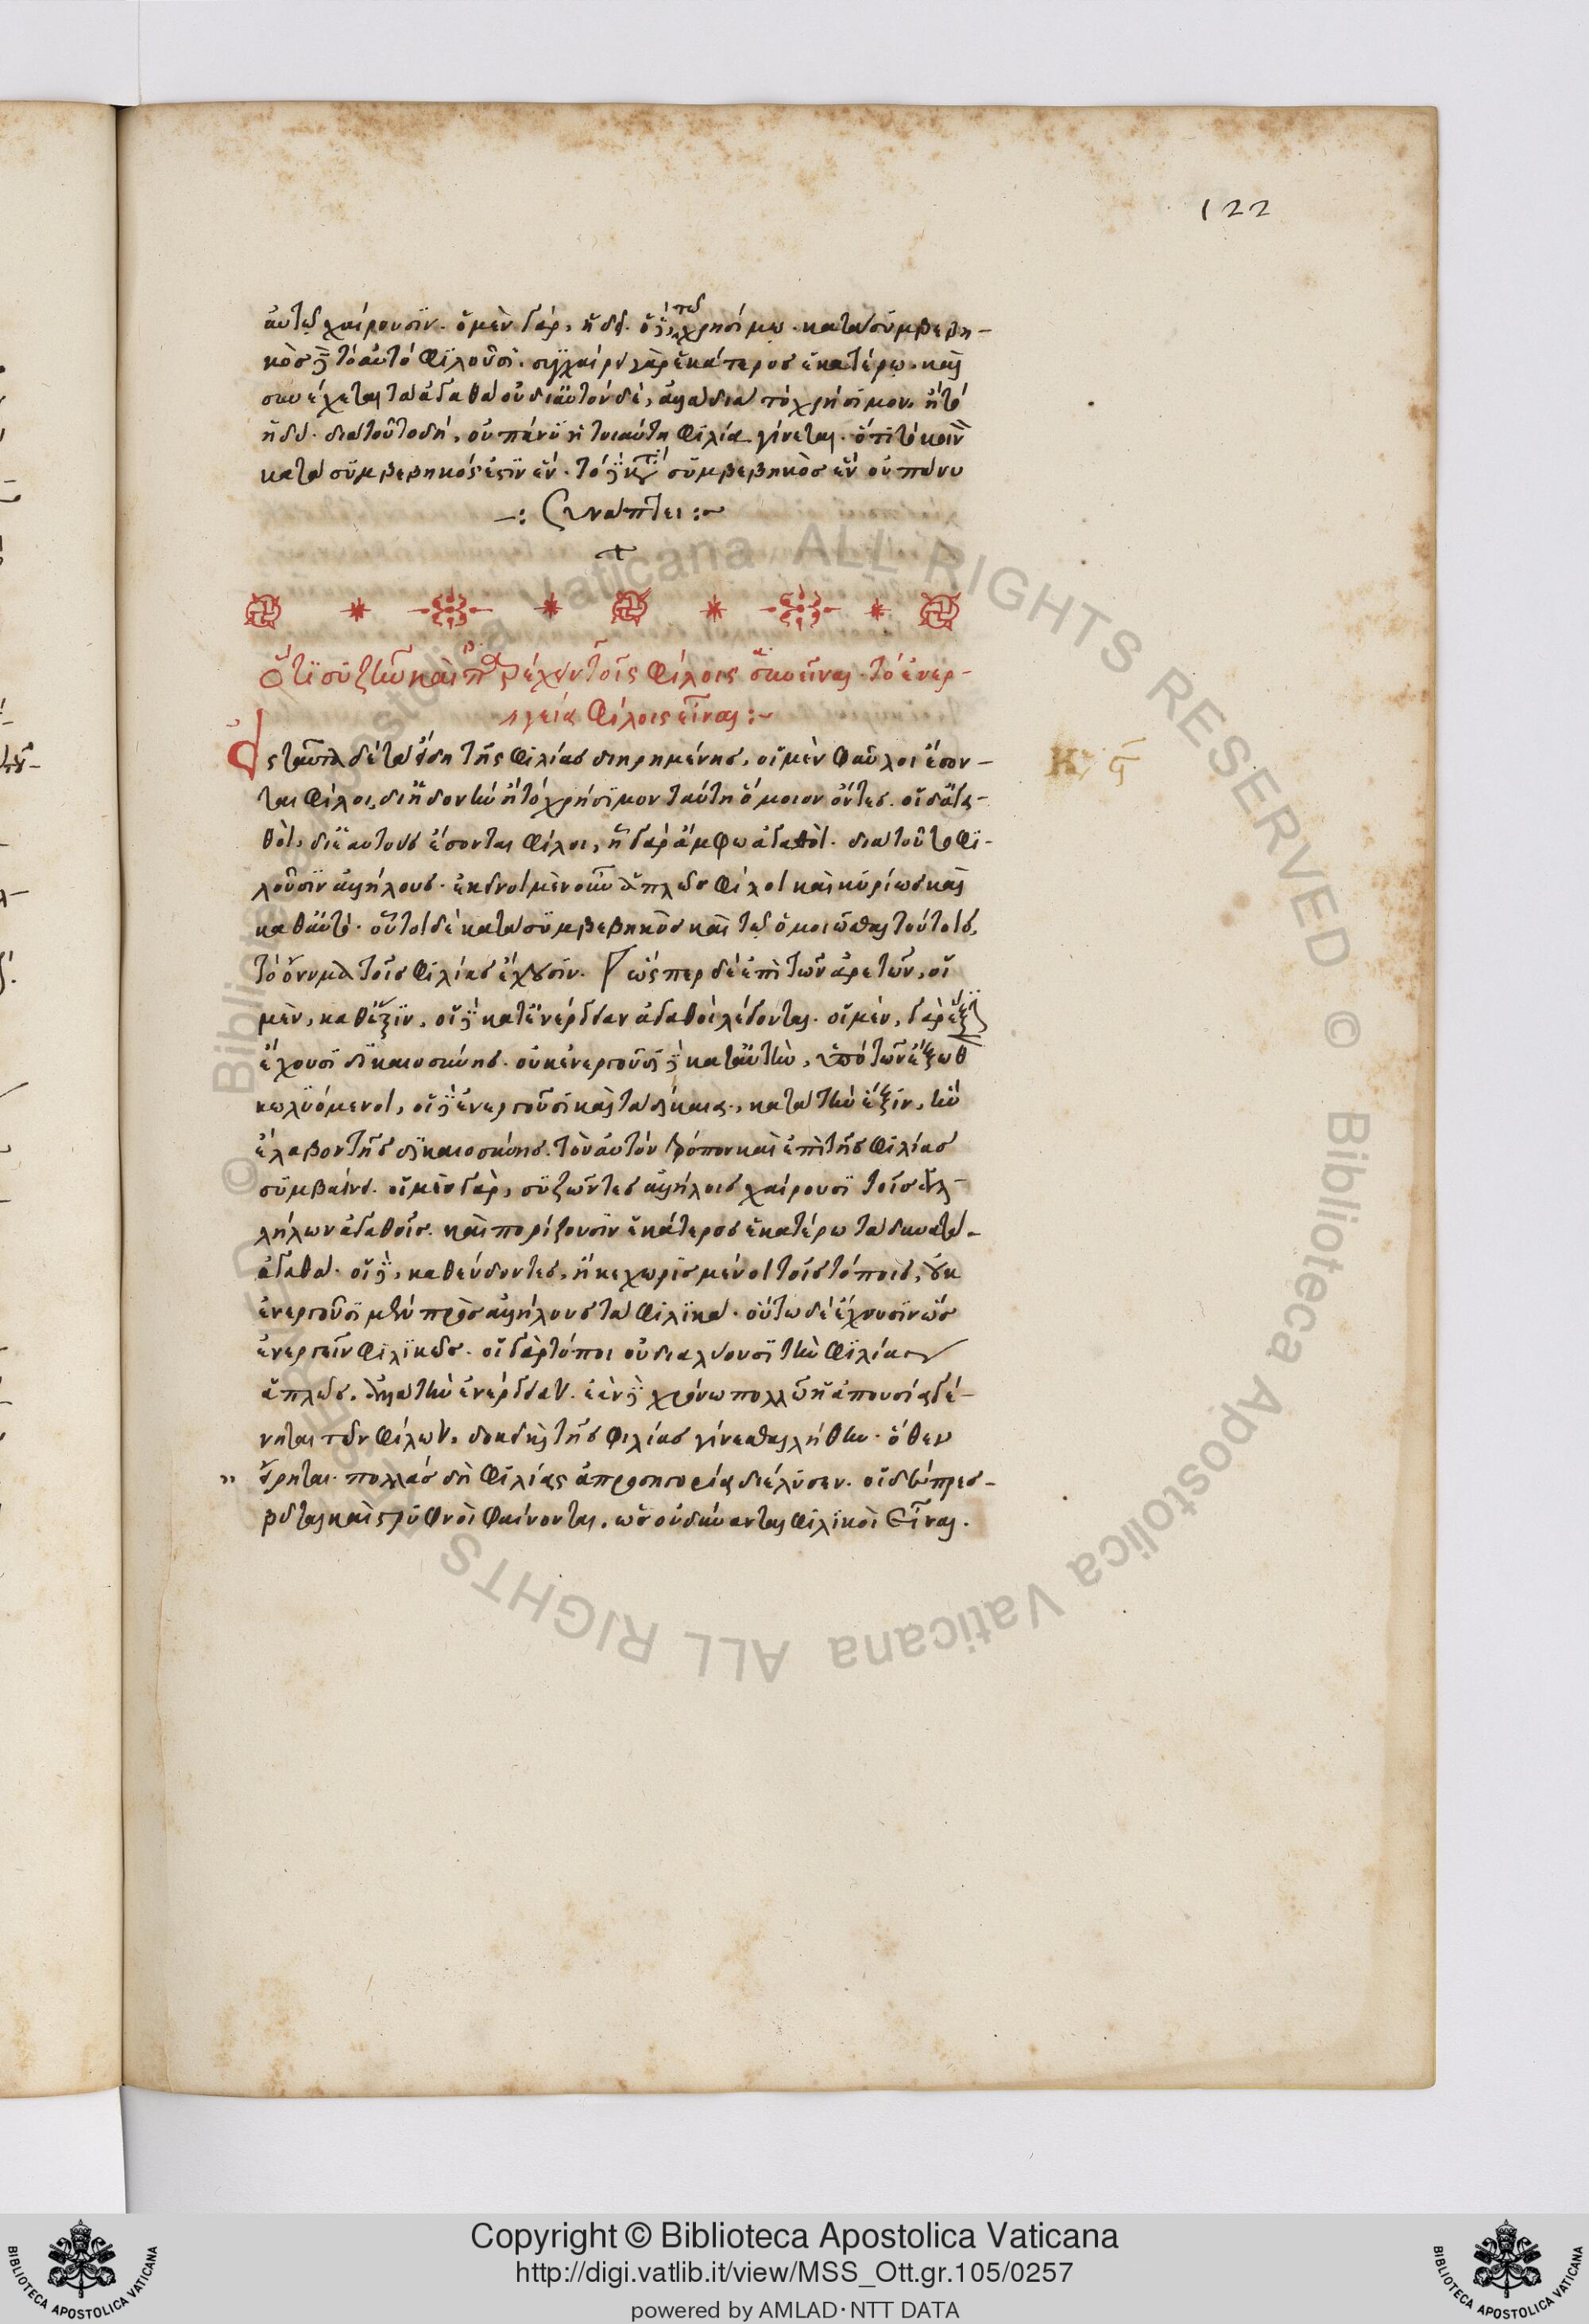 122
αὐτῷ χαίρουσιν. ὁ μὲν γὰρ, ἡδεῖ. ὁ δὲ, τῷ χρησίμω. κατα συμβεβη-
κὸς δὲ τὸ αὐτὸ φιλοῦσι. συγχαίρει γὰρ ἑκάτερος ἑκατέρω. καὶ
συνέχεται τὰ ἀγαθὰ οὐ δι αὐτὸν δὲ, ἀλλα δια τὸ χρήσιμον, ἢ τὸ
ἡδύ. διατοῦτο δὴ, οὐ πάνυ ἡ τοιαύτη φιλία γίνεται. ὅτι τὸ κοινὸν
κατα συμβεβηκός ἐστιν ἕν. τὸ δὲ κατὰ συμβεβηκὸς ἓν οὐ πάνυ
–: Συνάπτει :~
+
Ὅτι συζῆν καὶ παρέχειν τοῖς φίλοις εἶναι. τὸ ἐνερ-
γεία φίλοις εἶναι :~
Εἰς ταῦτα δὲ τὰ εἴδη τῆς φιλίας διηρημένης, οἱ μὲν φαῦλοι ἔσον-
ται φίλοι, δι ἡδονὴν ἢ τὸ χρήσιμον ταύτη ὅμοιον ὄντες. οἱ δ ἀγα-
θοὶ, δι ἑαυτοὺς ἔσονται φίλοι, ἧ γὰρ ἄμφω ἀγαθοὶ. δια τοῦτο φι-
λοῦσιν ἀλλήλους. ἐκεῖνοι μὲν οὖν ἁπλῶς φίλοι καὶ κυρίως καὶ
καθαὑτό. οὗτοι δὲ κατα συμβεβηκὸς καὶ τῷ ὁμοιῶσθαι τούτοις,
τὸ ὄνομα τοῖς φιλίας ἔχουσιν. ὥσπερ δὲ ἐπὶ τῶν ἀρετῶν, οἱ
μὲν, καθέξιν, οἱ δὲ κατἐνέργειαν ἀγαθοὶ λέγονται. οἱ μὲν, γὰρ ἕξιν
ἔχουσι δικαιοσύνης. οὐκ ἐνεργοῦσι δὲ κατ αὐτὴν, ὑπὸ τῶν ἔξωθεν
κωλυόμενοι, οἱ δὲ ἐνεργοῦσι καὶ τὰ δίκαια, κατα τὴν ἕξιν, ἣν
ἔλαβον τῆς δικαιοσύνης. τὸν αὐτὸν τρόπον καὶ ἐπὶ τῆς φιλίας
συμβαίνει. οἱ μὲν γὰρ, συζῶντες ἀλλήλοις χαίρουσι τοῖς ἀλ-
λήλων ἀγαθοῖς. καὶ πορίζουσιν ἑκάτερος ἑκατέρω τὰ δυνατὰ
ἀγαθὰ. οἱ δὲ, καθεύδοντες, ἢ κεχωρισμένοι τοῖς τόποις, οὐκ
ἐνεργοῦσι μὲν πρὸς ἀλλήλους τὰ φιλικὰ. οὕτω δὲ ἔχουσιν ὡς
ἐνεργεῖν φιλικῶς. οἱ γὰρ τόποι οὐ διαλύουσι τὴν φιλίαν
ἁπλῶς. ἀλλα τὴν ἐνέργειαν. ἐὰν δὲ χρόνω πολλῶ ἡ ἀπουσία γέ-
νηται τῶν φίλων, δοκεῖ καὶ τῆς φιλίας γίνεσθαι λήθην. ὅθεν
" εἴρηται. πολλάς δὴ φιλίας ἀπροσηγορία διέλυσεν. οἱ δὲ πρεσ-
βῦται καὶ στρυφνοὶ φαίνονται, ὡς οὐ δύνανται φιλικοὶ εἶναι.
Copyright © Biblioteca Apostolica Vaticana
http://digi.vatlib.it/view/MSS_Ott.gr.105/0257
powered by AMLAD·NTT DATA
BIBLIOTECA APOSTOLICA VATICANA
BIBLIOTECA APOSTOLICA VATICANA
© Biblioteca Apostolica Vaticana ALL RIGHTS RESERVED © Biblioteca Apostolica Vaticana ALL RIGHTS RESERVED